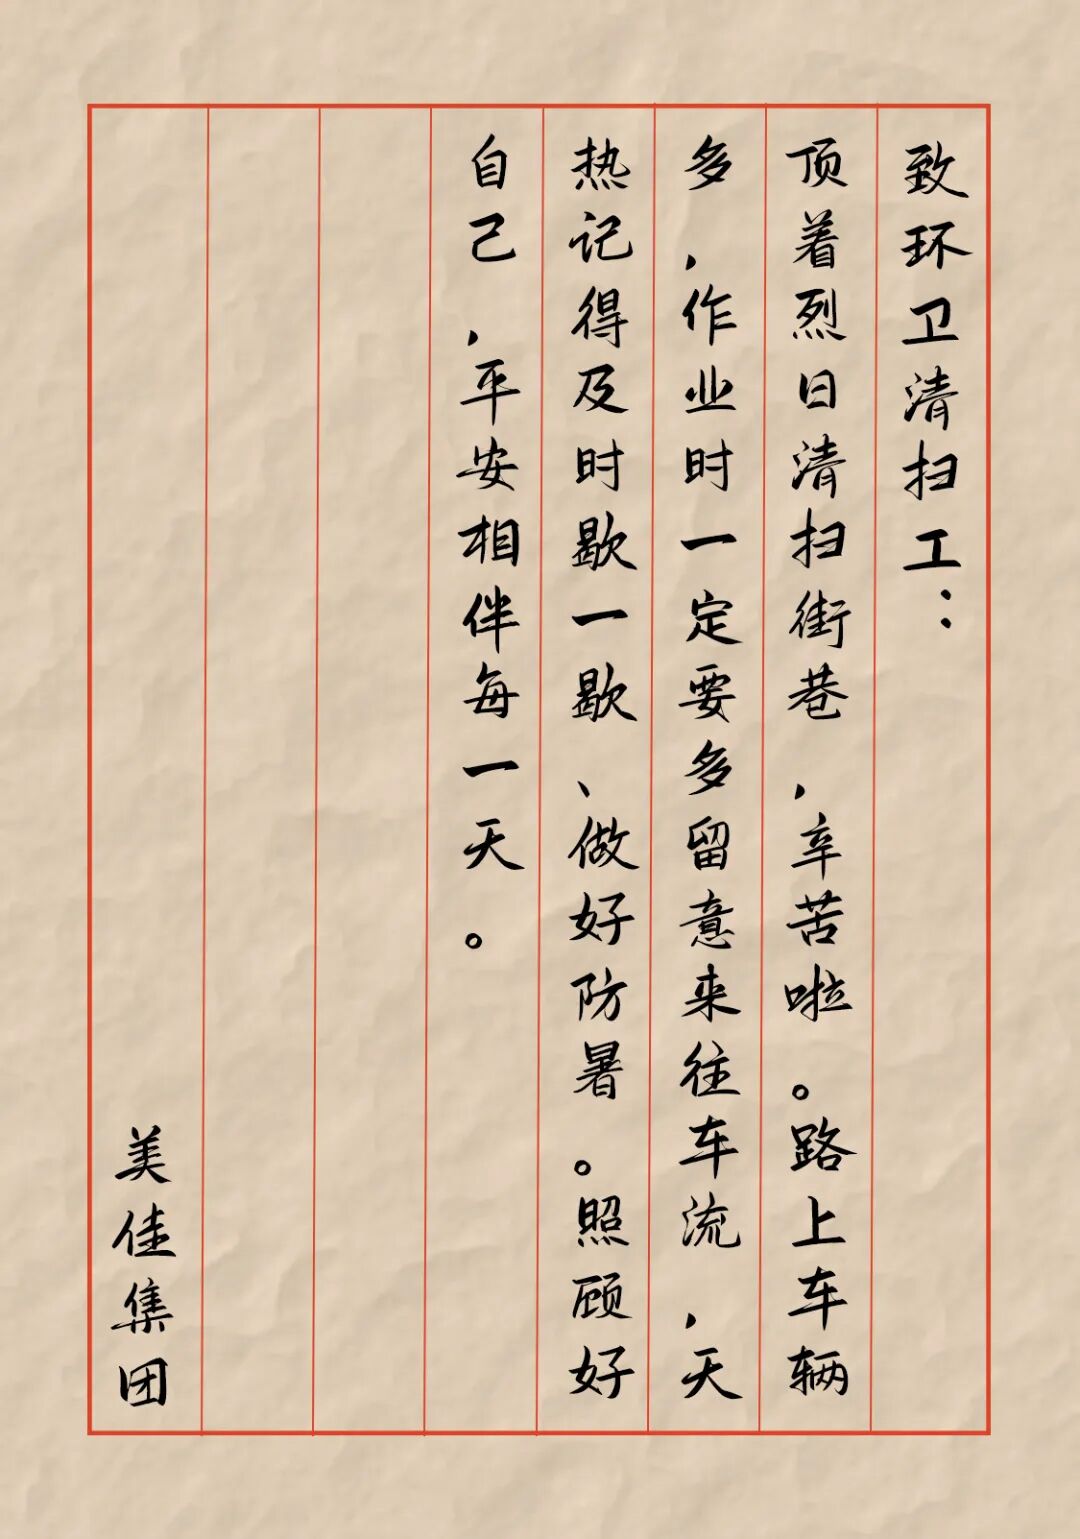 致环卫清扫工：
顶着烈日清扫街巷，辛苦啦。路上车辆
多，作业时一定要多留意来往车流，天
热记得及时歇一歇、做好防暑。照顾好
自己，平安相伴每一天。
美佳集团